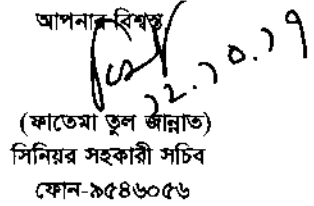 আপনার বিশ্বস্ত
১২.১০.১৭
(ফাতেমা তুল জান্নাত)
সিনিয়র সহকারী সচিব
ফোন-৯৫৪৬০৫৬